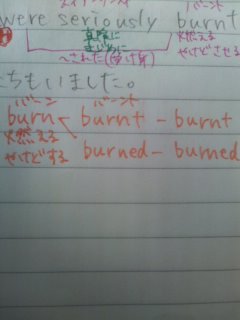 バーント
were seriously burnt
真剣に 燃える
まじめに やけどさせる
〜された(受け身)
ちもいました。
バーン バーント
burn burnt - burnt
燃える
やけどする burned - burned